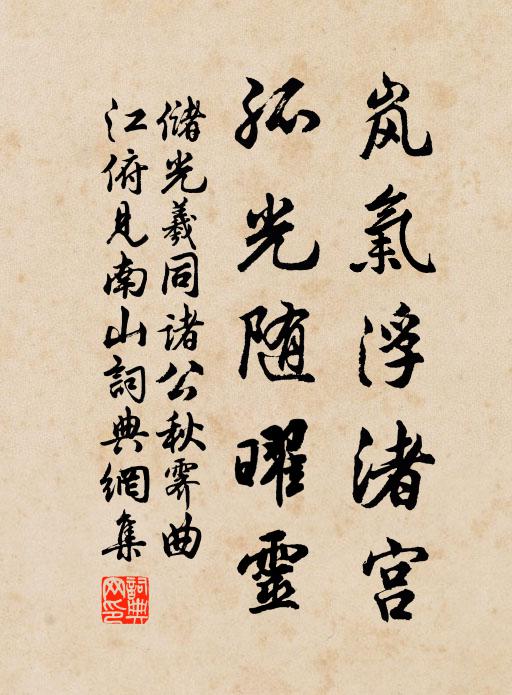 岚氣浮渚宫
孤光随曜靈
儲光羲同诸公秋霽曲
江俯見南山詞典網集
詞典
网印